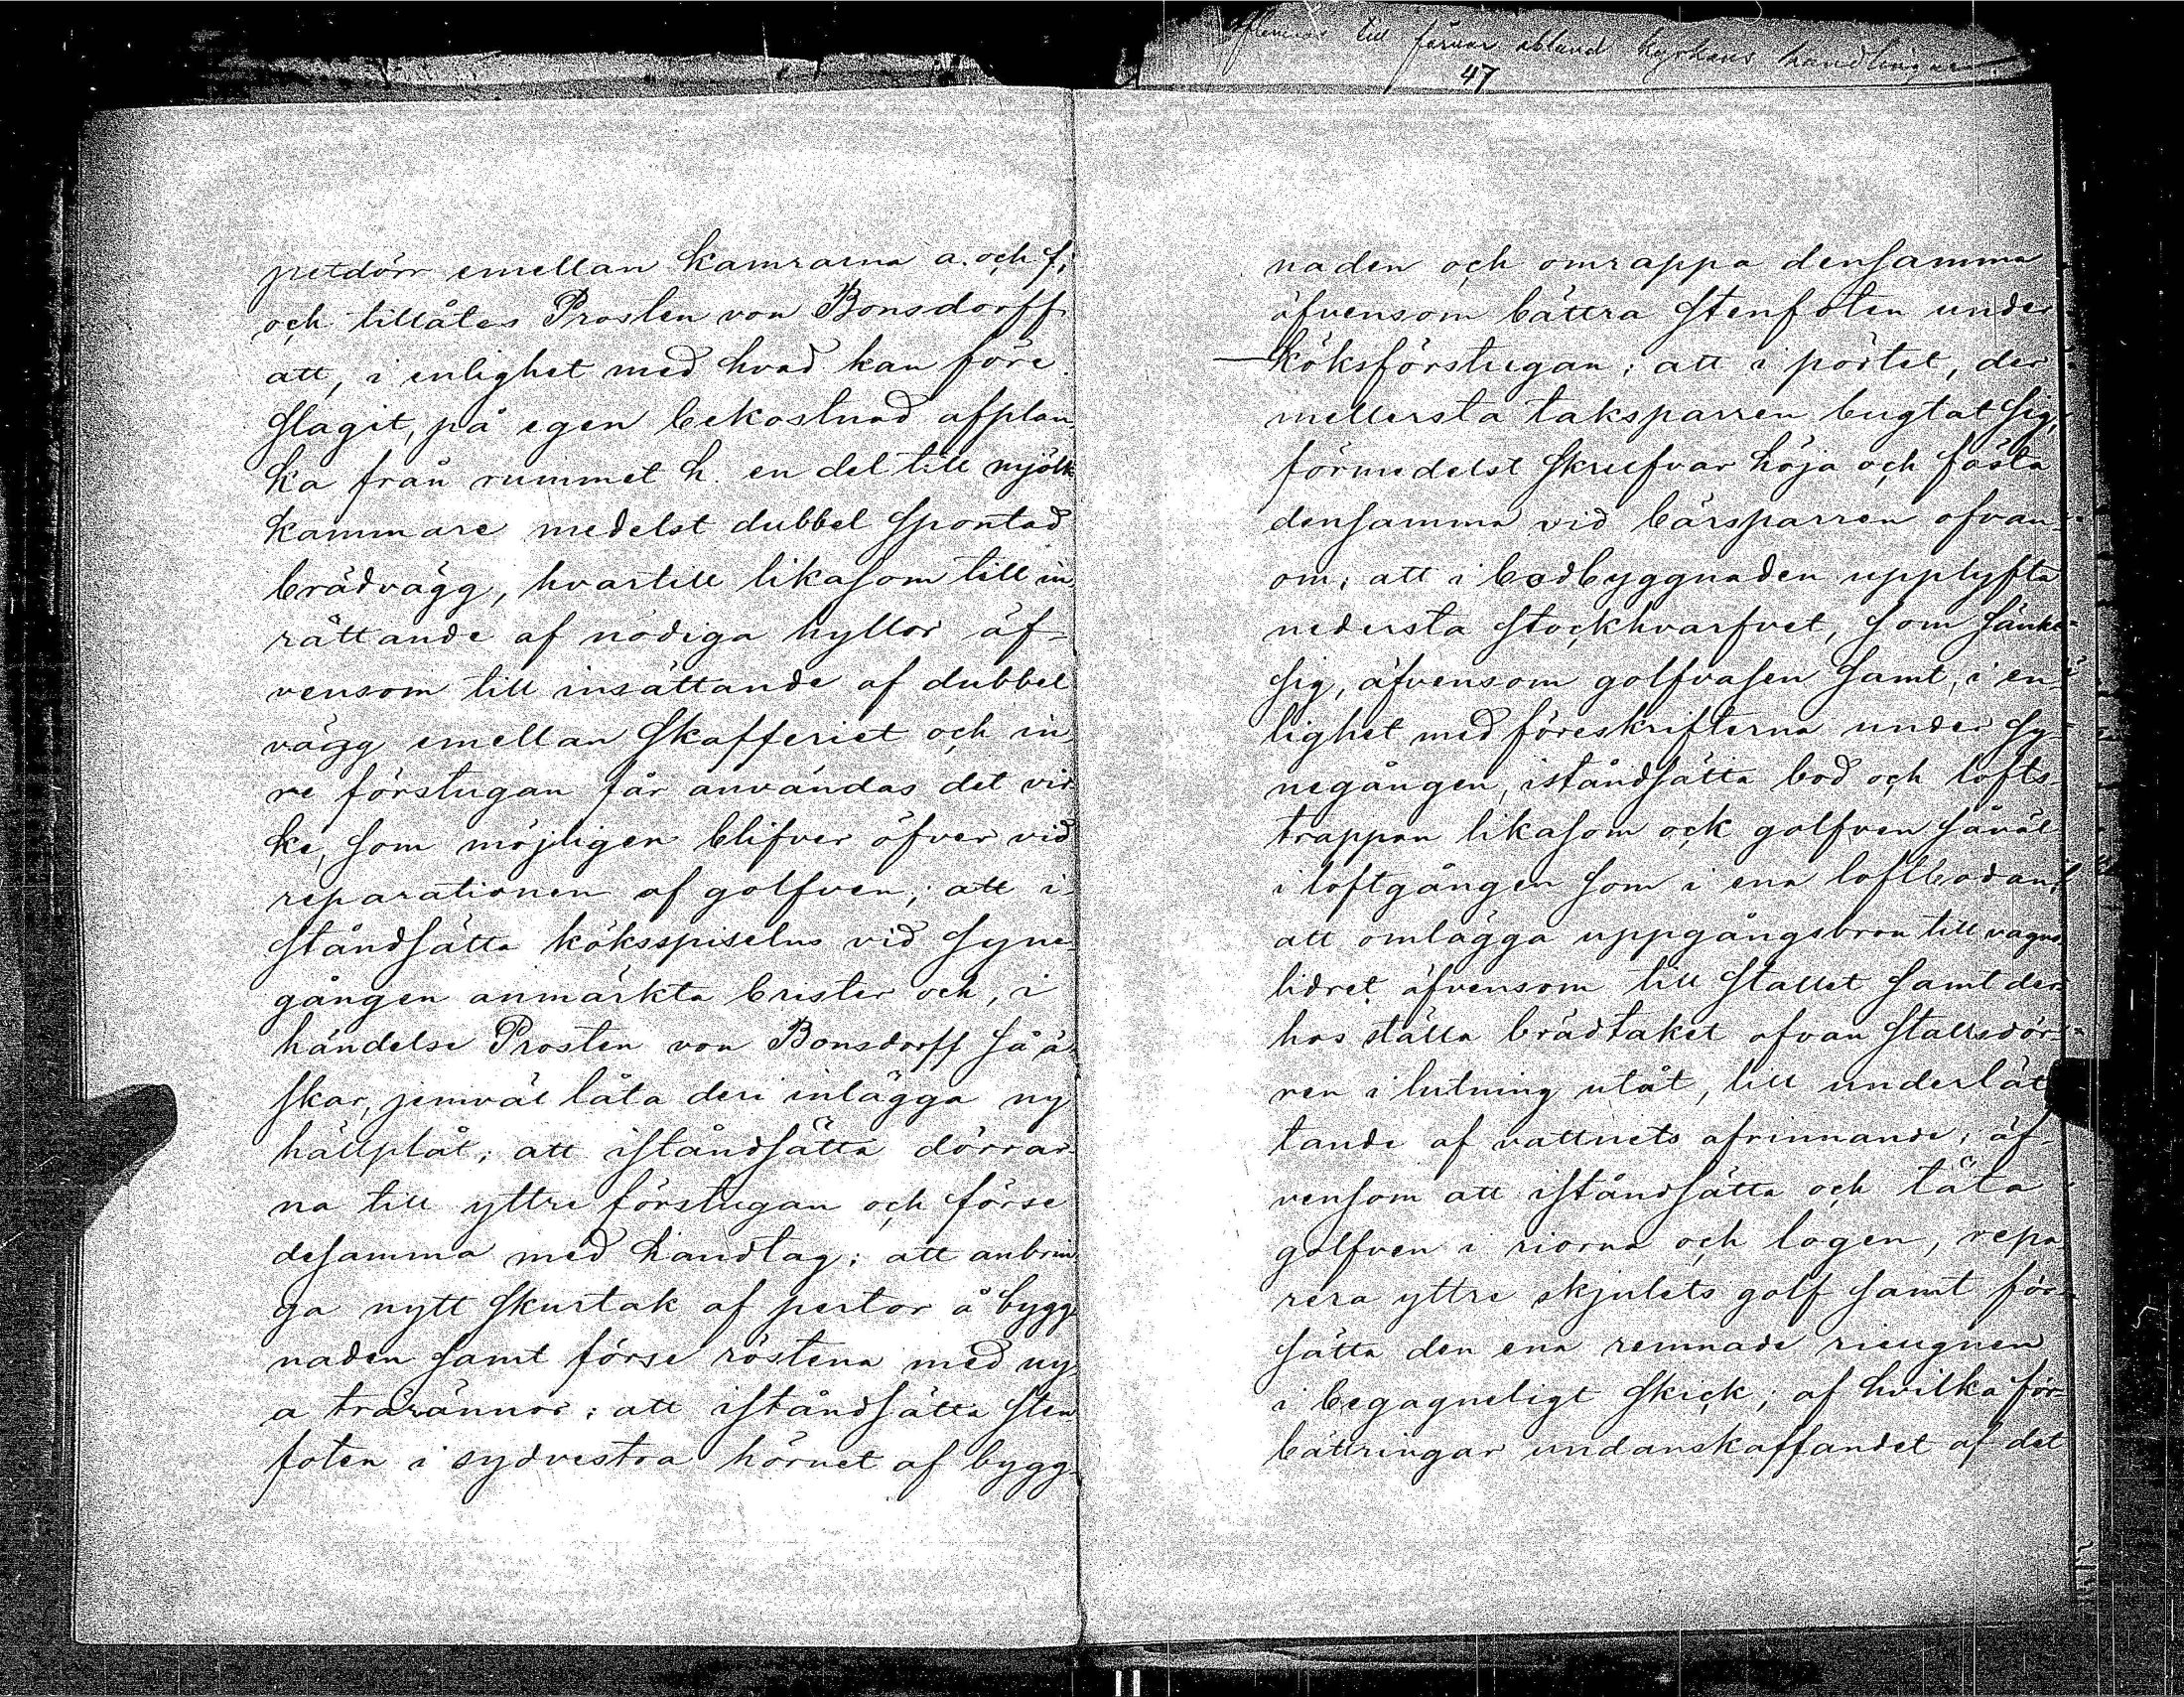 till förvar ibland kyrkans handlingar
47
petdörr emellan kamrarna a. och f;
och tillåtes Prosten von Bonsdorff
att, i enlighet med hvad han före
slagit, på egen bekostnad afplan
ka från rummet h. en del till mjölk
kammare medelst dubbel spontad
brädvägg, hvartill likasom till in
rättande af nödiga hyllor äf-
vensom till insättande af dubbel
vägg emellan skafferiet och in
re förstugan får användas det vir
ke, som möjligen blifver öfver vid
reparationen af golfven; att i
ståndsätta köksspiselns vid syne-
gången anmärkta brister och, i
händelse Prosten von Bonsdorff så ö
skar, jemväl låta deri inlägga ny
hällplåt; att iståndsätta dörrar
na till yttre förstugan och förse
desamma med handtag; att anbrin
ga nytt skurtak af pertor å bygg
naden samt förse röstena med ny
a trärännor; att iståndsätta sten
foten i sydvestra hörnet af bygg-
naden och omrappa densamma
äfvensom bättra stenfoten under
köksförstugan; att i pörtet, der
mellersta taksparren bugtat sig,
förmedelst skrufvar höja och fästa
densamma vid bärsparren ofvan-
om; att i bodbyggnaden upplyfta
nedersta stockhvarfvet, som sänkt
sig, äfvensom golfvasen samt, i en-
lighet med föreskrifterna under sy-
negången, iståndsätta bod och lofts-
trappan likasom ock golfven såväl
i loftgången som i ena loftboden;
att omlägga uppgångsbron till vagns
lidret äfvensom till stallet samt der-
hos ställa brädtaket ofvan stallsdör-
ren i lutning utåt, till underlät
tande af vattnets afrinnande; äf-
vensom att iståndsätta och täta
golfven i riorna och logen, repa
rera yttre skjulets golf samt för-
sätta den ena remnade rieugnen
i begagneligt skick; af hvilka för-
bättringar undanskaffandet af det